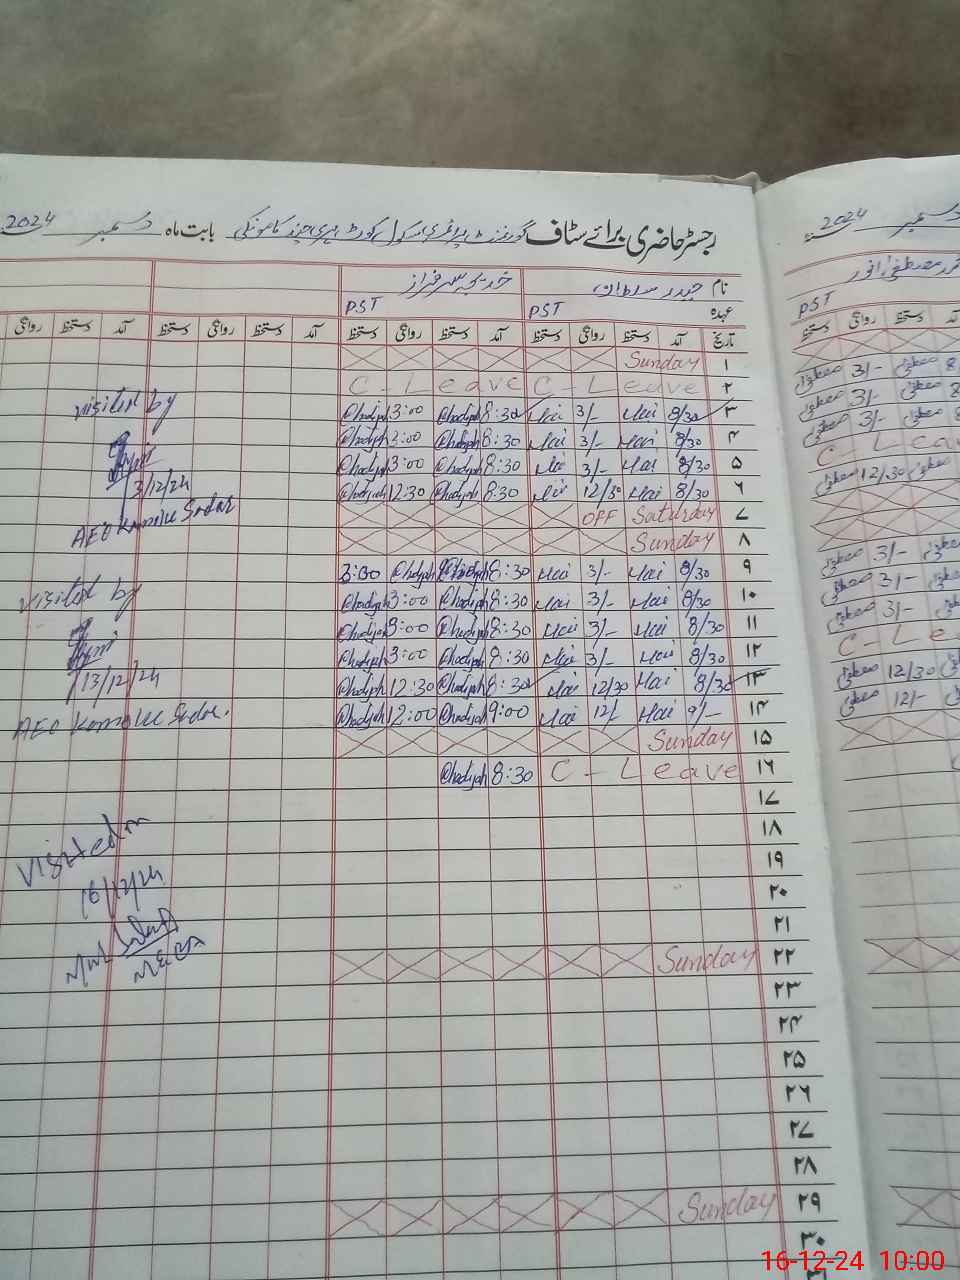 رجسٹر حاضری برائے سٹاف گورنمنٹ پرائمری سکول کوٹ ہری چند کامونکی بابت ماہ دسمبر 2024
نام حیدر سلطان خدیجہ سرفراز
عہدہ PST PST
تاریخ آمد دستخط روانگی دستخط آمد دستخط روانگی دستخط آمد دستخط روانگی دستخط آمد دستخط روانگی
۱ Sunday
۲ C-Leave C-Leave
۳ 8/30 Hai 3/- Hai 8:30 Khadijah 3:00 Khadijah
۴ 8/30 Hai 3/- Hai 8:30 Khadijah 3:00 Khadijah
۵ 8/30 Hai 3/- Hai 8:30 Khadijah 3:00 Khadijah
۶ 8/30 Hai 12/30 Hai 8:30 Khadijah 12:30 Khadijah
۷ OFF Saturday
۸ Sunday
۹ 8/30 Hai 3/- Hai 8:30 Khadijah Khadijah 3:00
۱۰ 8/30 Hai 3/- Hai 8:30 Khadijah 3:00 Khadijah
۱۱ 8/30 Hai 3/- Hai 8:30 Khadijah 3:00 Khadijah
۱۲ 8/30 Hai 3/- Hai 8:30 Khadijah 3:00 Khadijah
۱۳ 8/30 Hai 12/30 Hai 8:30 Khadijah 12:30 Khadijah
۱۴ 9/- Hai 12/- Hai 9:00 Khadijah 12:00 Khadijah
۱۵ Sunday
۱۶ C-Leave 8:30 Khadijah
۱۷
۱۸
۱۹
۲۰
۲۱
۲۲ Sunday
۲۳
۲۴
۲۵
۲۶
۲۷
۲۸
۲۹ Sunday
۳۰
visited by
3/12/24
AEO Kamoke Sadar
visited by
13/12/24
AEO Kamoke Sadar.
Visited on
16/12/24
MEA
دسمبر 2024
محمد مصطفیٰ انور
PST
آمد دستخط روانگی دستخط
8 مصطفیٰ 3/- مصطفیٰ
مصطفیٰ 3/- مصطفیٰ
مصطفیٰ 3/- مصطفیٰ
C-Lea
مصطفیٰ 12/30 مصطفیٰ
مصطفیٰ 3/- مصطفیٰ
مصطفیٰ 3/- مصطفیٰ
3/- مصطفیٰ
C-Le
12/30 مصطفیٰ
12/- مصطفیٰ
16-12-24 10:00